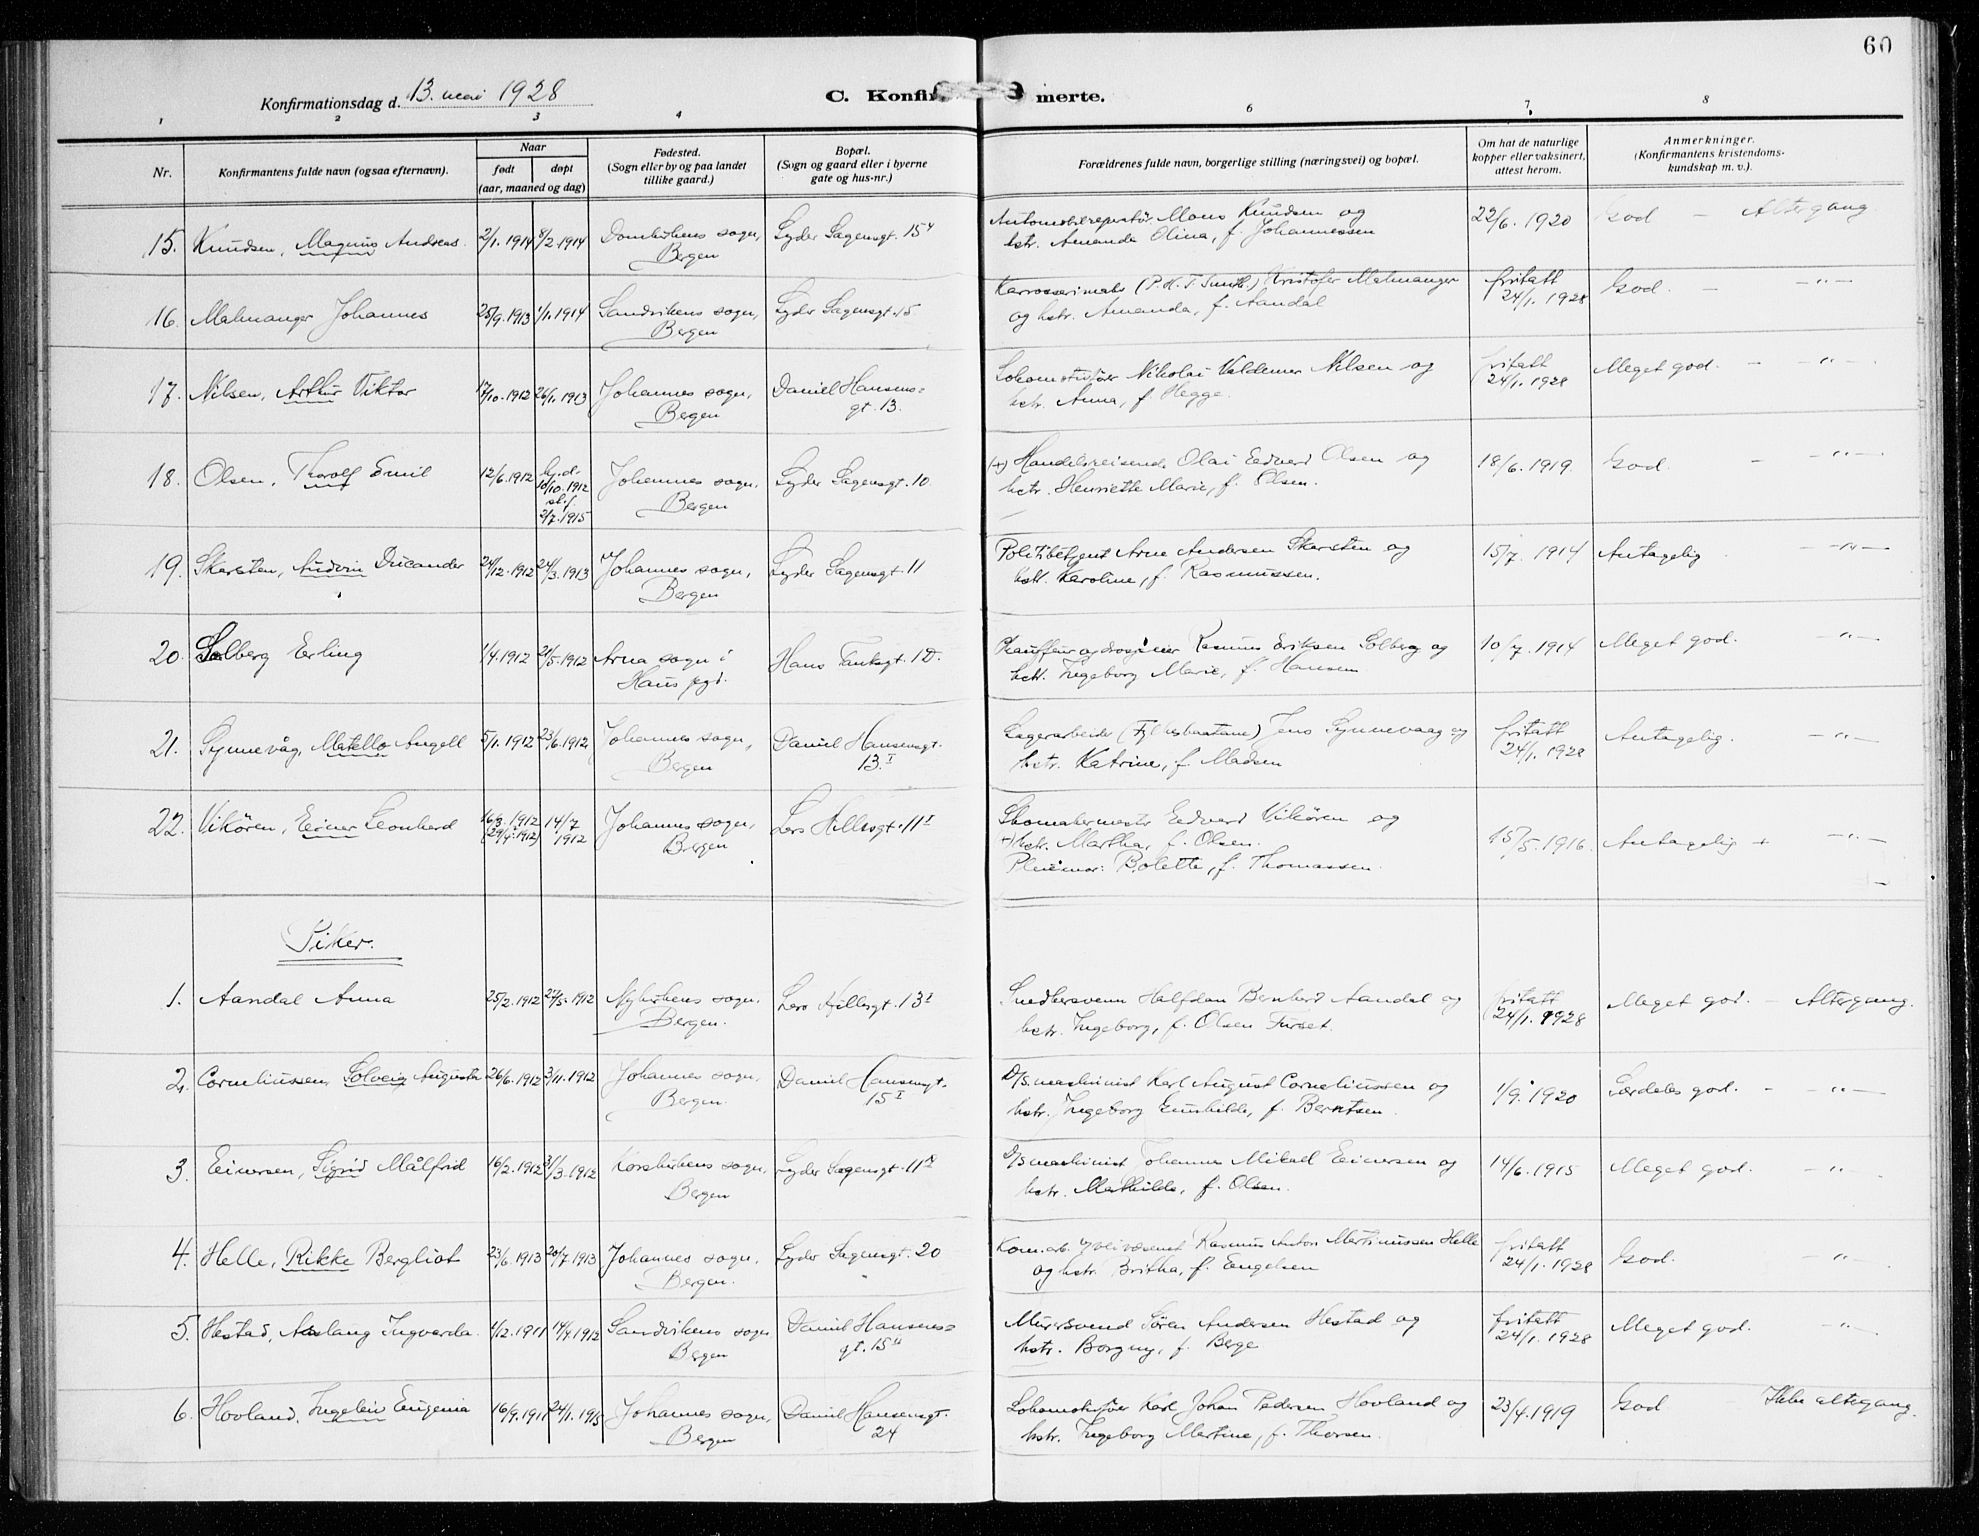 60
Konfirmationsdag d. 13. mai 1928
C. Konfir merte.
1 2 3 4 6 7 8
Nr.
Konfirmantens fulde navn (ogsaa efternavn).
Naar
født
døpt
(aar, maaned og dag)
Fødested.
(Sogn eller by og paa landet
tillike gaard.)
Bopæl.
(Sogn og gaard eller i byerne
gate og hus-nr.)
Forældrenes fulde navn, borgerlige stilling (næringsvei) og bopæl.
Om hat de naturlige
kopper eller vaksinert,
attest herom.
Anmerkninger.
(Konfirmantens kristendoms-
kundskap m. v.).
15. Knudsen, Magnus Andreas. 2/1. 1914 8/2. 1914 Domkirkens sogn, Lyder Sagensgt. 15
Bergen
Automobilreparatør Mons Knudsen og
hstr. Amanda Olina, f. Johannessen
22/6. 1920 God – Altergang
16. Malmanger Johannes 25/9. 1913 1/1. 1914 Sandvikens sogn, Lyder Sagensgt. 15
Bergen
(P. H. T. Smith) Kristofer Malmanger
og hstr. Amanda, f. Aandal
fritatt
24/1. 1928 God. – -"-
17. Nilsen, Arthur Viktor 17/10. 1912 26/1. 1913 Johannes sogn, Daniel Hansens=
Bergen gt. 13.
Lokomotivfør Nikolai Valdemar Nilsen og
hstr. Anna, f. Hegge.
fritatt
24/1. 1928 Meget god. – -"-
18. Olsen, Thorolf Emil 12/6. 1912 hj.d.
10/10. 1912
st. f.
2/7. 1915
Johannes sogn, Lyder Sagensgt. 10
Bergen
(+) Handelsreisende Olai Edvard Olsen og
hstr. Henriette Marie, f. Olsen.
18/6. 1919. God. – -"-
19. Skarsten, Audvin Ducander 24/12. 1912 24/3. 1913 Johannes sogn, Lyder Sagensgt. 11
Bergen
Politibetjent Arne Andersen Skarsten og
hstr. Karoline, f. Rasmussen.
15/7. 1914 Antagelig – -"-
20. Solberg Erling 1/4. 1912 21/5. 1912 Arna sogn i Hans Tanksgt. 1D.
Haus pgd.
Chauffeur og drosjeeier Rasmus Eriksen Solberg og
hstr. Ingeborg Marie, f. Hansen
10/7. 1914 Meget god. -"-
21. Synnevåg, Matello Angell 5/1. 1912 23/6. 1912 Johannes sogn, Daniel Hansensgt.
Bergen 13. I
Lagerarbeider Jens Synnevaag og
hstr. Katrine, f. Madsen
fritatt
24/1. 1928 Antagelig. – -"-
22. Vikören, Einar Leonhard 16/3. 1912
(29/4. 1912)
14/7
1912
Johannes sogn, Lars Hillesgt. 11 I
Bergen
Skomakermester Edvard Vikören og
+) hstr. Martha, f. Olsen.
Pleiemor: Bolette, f. Thomassen.
15/5. 1916. Antagelig + -"-
Piker.
1. Aandal Anna 25/2. 1912 27/5. 1912 Nykirkens sogn. Lars Hillesgt. 13 I
Bergen.
Snedkersvenn Halfdan Bernhard Aandal og
hstr. Ingeborg, f. Olsen Furset.
fritatt
24/1. 1928 Meget god. – Altergang.
2. Corneliussen, Solveig Augusta 26/6. 1912 3/11. 1912 Johannes sogn, Daniel Hansensgt.
Bergen. 15 I
D/S. maskinist Karl August Corneliussen og
hstr. Ingeborg Gunhilde, f. Berntsen.
1/9. 1920 Særdeles god. – -"-
3. Einersen, Sigrid Målfrid 16/2. 1912 31/3. 1912 Korskirkens sogn, Lyder Sagensgt. 11
Bergen
D/s maskinist Johannes Mikael Einersen og
hstr. Mathilde, f. Olsen.
14/6. 1915 Meget god. -"-
4. Helle, Rikke Bergliot 23/6. 1913 20/7. 1913 Johannes sogn, Lyder Sagensgt. 20
Bergen.
Kom. arb. v/veivæsenet Rasmus Anton Martinussen Helle
og hstr. Britha, f. Engelsen
fritatt
24/1. 1928 God. -"-
5. Hestad, Aaslaug Ingvarda. 1/12. 1911 14/4. 1912 Sandvikens sogn Daniel Hansens=
Bergen gt. 15
Murersvend Søren Andersen Hestad og
hstr. Borgny, f. Berge
fritatt
24/1. 1928 Meget god. -"-
6. Hovland, Ingeleiv Eugenia 16/9. 1911 24/1. 1915 Johannes sogn, Daniel Hansensgt.
Bergen 24
Lokomotivfør Karl Johan Pedersen Hovland og
hstr. Ingeborg Martine, f. Thorsen.
23/4. 1919 God. Ikke altergang.